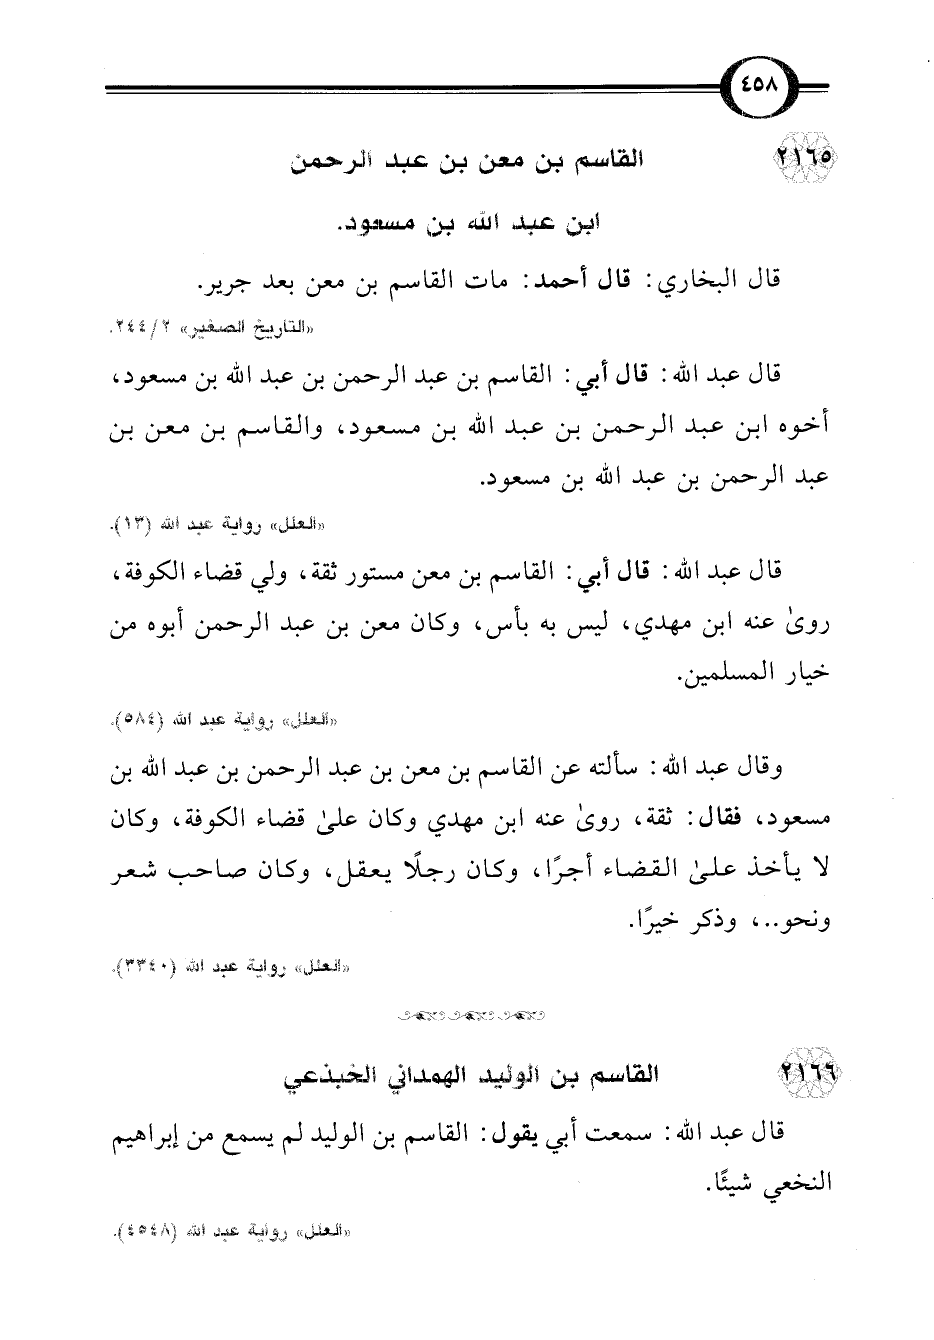 ٤٥٨
٢١٦٥ القاسم بن معن بن عبد الرحمن
ابن عبد الله بن مسعود.
قال البخاري: قال أحمد: مات القاسم بن معن بعد جرير.
«التاريخ الصغير» ٢/ ٢٤٤.
قال عبد الله: قال أبي: القاسم بن عبد الرحمن بن عبد الله بن مسعود،
أخوه ابن عبد الرحمن بن عبد الله بن مسعود، والقاسم بن معن بن
عبد الرحمن بن عبد الله بن مسعود.
«العلل» رواية عبد الله (١٣).
قال عبد الله: قال أبي: القاسم بن معن مستور ثقة، ولي قضاء الكوفة،
روىٰ عنه ابن مهدي، ليس به بأس، وكان معن بن عبد الرحمن أبوه من
خيار المسلمين.
«العلل» رواية عبد الله (٥٨٤).
وقال عبد الله: سألته عن القاسم بن معن بن عبد الرحمن بن عبد الله بن
مسعود، فقال: ثقة، روىٰ عنه ابن مهدي وكان علىٰ قضاء الكوفة، وكان
لا يأخذ علىٰ القضاء أجرًا، وكان رجلًا يعقل، وكان صاحب شعر
ونحو..، وذكر خيرًا.
«العلل» رواية عبد الله (٣٣٤٠).
٢١٦٦ القاسم بن الوليد الهمداني الخبذعي
قال عبد الله: سمعت أبي يقول: القاسم بن الوليد لم يسمع من إبراهيم
النخعي شيئًا.
«العلل» رواية عبد الله (٤٥٤٨).